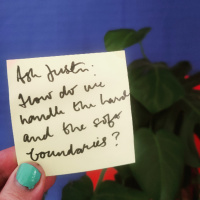 Ask Justin:
How do we
handle the hard
and the soft
boundaries?